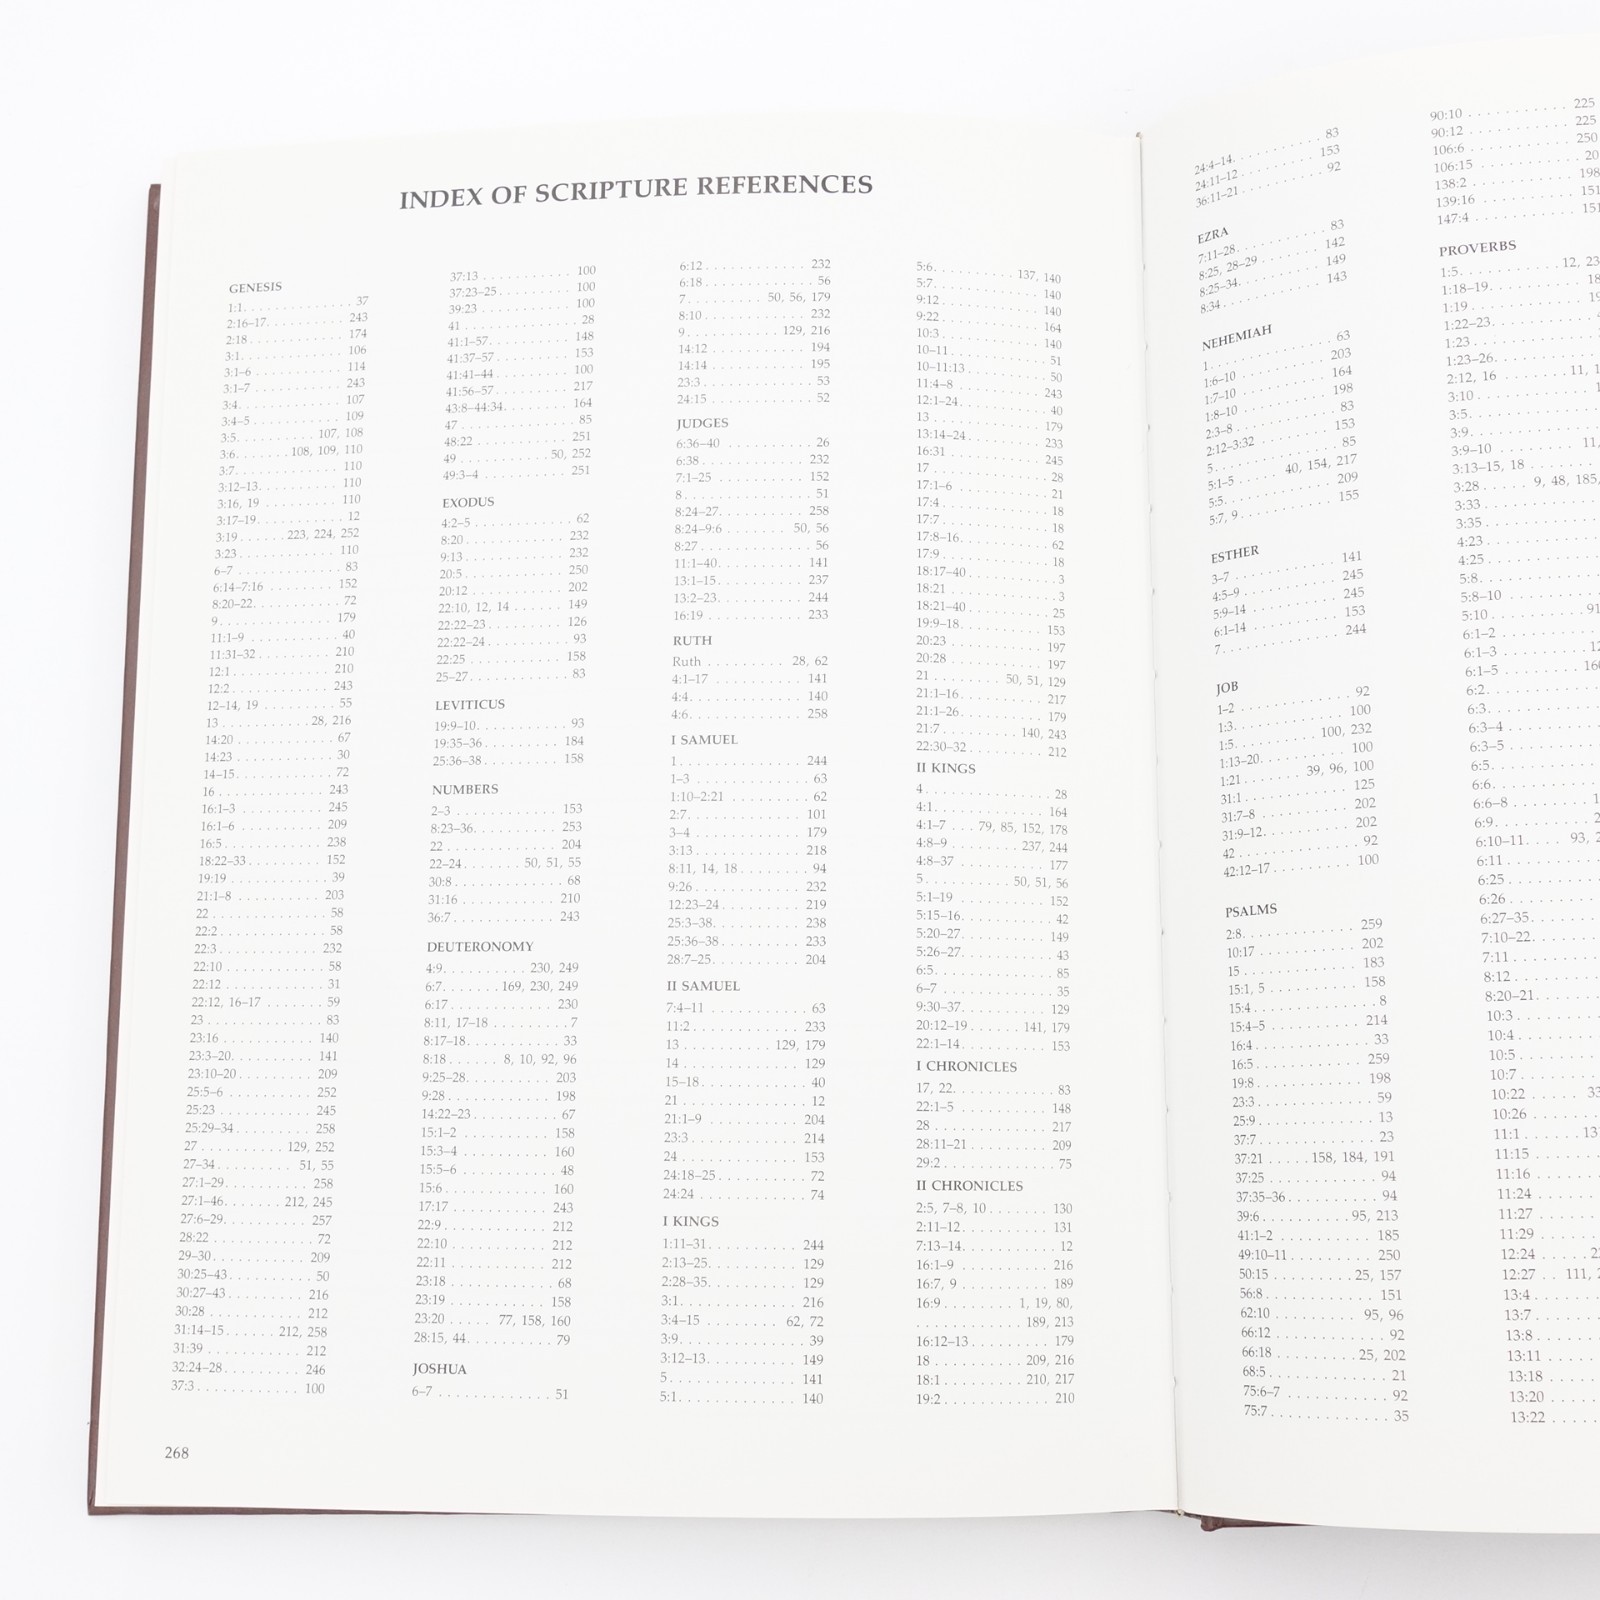 INDEX OF SCRIPTURE REFERENCES
GENESIS
1:1. . . . . . . . . . . . 37
2:16–17. . . . . . . . . 243
2:18 . . . . . . . . . . . 174
3:1. . . . . . . . . . . . 106
3:1–6 . . . . . . . . . . 114
3:1–7 . . . . . . . . . . 243
3:4. . . . . . . . . . . . 107
3:4–5 . . . . . . . . . . 109
3:5. . . . . . . . . 107, 108
3:6. . . . . . . 108, 109, 110
3:7. . . . . . . . . . . . 110
3:12–13. . . . . . . . . 110
3:16, 19 . . . . . . . . 110
3:17–19. . . . . . . . . . 12
3:19 . . . . . . 223, 224, 252
3:23 . . . . . . . . . . . 110
6–7 . . . . . . . . . . . . 83
6:14–7:16 . . . . . . . . 152
8:20–22. . . . . . . . . . 72
9 . . . . . . . . . . . . . 179
11:1–9 . . . . . . . . . . 40
11:31–32 . . . . . . . . 210
12:1 . . . . . . . . . . . 210
12:2 . . . . . . . . . . . 243
12–14, 19 . . . . . . . . 55
13 . . . . . . . . . . 28, 216
14:20 . . . . . . . . . . . 67
14:23 . . . . . . . . . . . 30
14–15. . . . . . . . . . . 72
16 . . . . . . . . . . . . 243
16:1–3 . . . . . . . . . . 245
16:1–6 . . . . . . . . . . 209
16:5 . . . . . . . . . . . 238
18:22–33 . . . . . . . . . 152
19:19 . . . . . . . . . . . 39
21:1–8 . . . . . . . . . . 203
22 . . . . . . . . . . . . . 58
22:2 . . . . . . . . . . . . 58
22:3 . . . . . . . . . . . 232
22:10 . . . . . . . . . . . 58
22:12 . . . . . . . . . . . 31
22:12, 16–17 . . . . . . . 59
23 . . . . . . . . . . . . . 83
23:16 . . . . . . . . . . 140
23:3–20. . . . . . . . . . 141
23:10–20 . . . . . . . . . 209
25:5–6 . . . . . . . . . . 252
25:23 . . . . . . . . . . 245
25:29–34 . . . . . . . . . 258
27 . . . . . . . . . 129, 252
27–34 . . . . . . . . . 51, 55
27:1–29 . . . . . . . . . 258
27:1–46. . . . . . . 212, 245
27:6–29. . . . . . . . . . 257
28:22 . . . . . . . . . . . 72
29–30 . . . . . . . . . . 209
30:25–43 . . . . . . . . . 50
30:27–43 . . . . . . . . . 216
30:28 . . . . . . . . . . 212
31:14–15 . . . . . . 212, 258
31:39 . . . . . . . . . . 212
32:24–28 . . . . . . . . . 246
37:3 . . . . . . . . . . . 100
37:13 . . . . . . . . . . 100
37:23–25 . . . . . . . . . 100
39:23 . . . . . . . . . . 100
41 . . . . . . . . . . . . . 28
41:1–57. . . . . . . . . . 148
41:37–57 . . . . . . . . . 153
41:41–44 . . . . . . . . . 100
41:56–57 . . . . . . . . . 217
43:8–44:34. . . . . . . . 164
47 . . . . . . . . . . . . . 85
48:22 . . . . . . . . . . 251
49 . . . . . . . . . . 50, 252
49:3–4 . . . . . . . . . . 251
EXODUS
4:2–5 . . . . . . . . . . . 62
8:20 . . . . . . . . . . . 232
9:13 . . . . . . . . . . . 232
20:5 . . . . . . . . . . . 250
20:12 . . . . . . . . . . 202
22:10, 12, 14 . . . . . . 149
22:22–23 . . . . . . . . . 126
22:22–24 . . . . . . . . . 93
22:25 . . . . . . . . . . 158
25–27. . . . . . . . . . . 83
LEVITICUS
19:9–10. . . . . . . . . . 93
19:35–36 . . . . . . . . . 184
25:36–38 . . . . . . . . . 158
NUMBERS
2–3 . . . . . . . . . . . 153
8:23–36. . . . . . . . . . 253
22 . . . . . . . . . . . . 204
22–24 . . . . . . . 50, 51, 55
30:8 . . . . . . . . . . . . 68
31:16 . . . . . . . . . . 210
36:7 . . . . . . . . . . . 243
DEUTERONOMY
4:9. . . . . . . . . 230, 249
6:7. . . . . . 169, 230, 249
6:17 . . . . . . . . . . . 230
8:11, 17–18 . . . . . . . . 7
8:17–18. . . . . . . . . . 33
8:18 . . . . . . 8, 10, 92, 96
9:25–28. . . . . . . . . . 203
9:28 . . . . . . . . . . . 198
14:22–23 . . . . . . . . . 67
15:1–2 . . . . . . . . . . 158
15:3–4 . . . . . . . . . . 160
15:5–6 . . . . . . . . . . 48
15:6 . . . . . . . . . . . 160
17:17 . . . . . . . . . . 243
22:9 . . . . . . . . . . . 212
22:10 . . . . . . . . . . 212
22:11 . . . . . . . . . . 212
23:18 . . . . . . . . . . . 68
23:19 . . . . . . . . . . 158
23:20 . . . . . 77, 158, 160
28:15, 44. . . . . . . . . 79
JOSHUA
6–7 . . . . . . . . . . . . 51
6:12 . . . . . . . . . . . 232
6:18 . . . . . . . . . . . . 56
7 . . . . . . . . 50, 56, 179
8:10 . . . . . . . . . . . 232
9 . . . . . . . . . . 129, 216
14:12 . . . . . . . . . . 194
14:14 . . . . . . . . . . 195
23:3 . . . . . . . . . . . . 53
24:15 . . . . . . . . . . . 52
JUDGES
6:36–40 . . . . . . . . . . 26
6:38 . . . . . . . . . . . 232
7:1–25 . . . . . . . . . . 152
8 . . . . . . . . . . . . . . 51
8:24–27. . . . . . . . . . 258
8:24–9:6 . . . . . . . 50, 56
8:27 . . . . . . . . . . . . 56
11:1–40. . . . . . . . . . 141
13:1–15. . . . . . . . . . 237
13:2–23. . . . . . . . . . 244
16:19 . . . . . . . . . . 233
RUTH
Ruth . . . . . . . . . 28, 62
4:1–17 . . . . . . . . . . 141
4:4. . . . . . . . . . . . 140
4:6. . . . . . . . . . . . 258
I SAMUEL
1 . . . . . . . . . . . . . 244
1–3 . . . . . . . . . . . . 63
1:10–2:21 . . . . . . . . . 62
2:7. . . . . . . . . . . . 101
3–4 . . . . . . . . . . . 179
3:13 . . . . . . . . . . . 218
8:11, 14, 18 . . . . . . . 94
9:26 . . . . . . . . . . . 232
12:23–24 . . . . . . . . . 219
25:3–38. . . . . . . . . . 238
25:36–38 . . . . . . . . . 233
28:7–25. . . . . . . . . . 204
II SAMUEL
7:4–11 . . . . . . . . . . 63
11:2 . . . . . . . . . . . 233
13 . . . . . . . . . 129, 179
14 . . . . . . . . . . . . 129
15–18. . . . . . . . . . . 40
21 . . . . . . . . . . . . . 12
21:1–9 . . . . . . . . . . 204
23:3 . . . . . . . . . . . 214
24 . . . . . . . . . . . . 153
24:18–25 . . . . . . . . . 72
24:24 . . . . . . . . . . . 74
I KINGS
1:11–31. . . . . . . . . . 244
2:13–25. . . . . . . . . . 129
2:28–35. . . . . . . . . . 129
3:1. . . . . . . . . . . . 216
3:4–15 . . . . . . . . 62, 72
3:9. . . . . . . . . . . . . 39
3:12–13. . . . . . . . . . 149
5 . . . . . . . . . . . . . 141
5:1. . . . . . . . . . . . 140
5:6. . . . . . . . . 137, 140
5:7. . . . . . . . . . . . 140
9:12 . . . . . . . . . . . 140
9:22 . . . . . . . . . . . 164
10:3 . . . . . . . . . . . 140
10–11 . . . . . . . . . . . 51
10–11:13 . . . . . . . . . 50
11:4–8 . . . . . . . . . . 243
12:1–24. . . . . . . . . . 40
13 . . . . . . . . . . . . 179
13:14–24 . . . . . . . . . 233
16:31 . . . . . . . . . . 245
17 . . . . . . . . . . . . . 28
17:1–6 . . . . . . . . . . 21
17:4 . . . . . . . . . . . . 18
17:7 . . . . . . . . . . . . 18
17:8–16. . . . . . . . . . 62
17:9 . . . . . . . . . . . . 18
18:17–40 . . . . . . . . . . 3
18:21 . . . . . . . . . . . . 3
18:21–40 . . . . . . . . . 25
19:9–18. . . . . . . . . . 153
20:23 . . . . . . . . . . 197
20:28 . . . . . . . . . . 197
21 . . . . . . . . 50, 51, 129
21:1–16. . . . . . . . . . 217
21:1–26. . . . . . . . . . 179
21:7 . . . . . . . . 140, 243
22:30–32 . . . . . . . . . 212
II KINGS
4 . . . . . . . . . . . . . . 28
4:1. . . . . . . . . . . . 164
4:1–7 . . . 79, 85, 152, 178
4:8–9 . . . . . . . . 237, 244
4:8–37 . . . . . . . . . . 177
5 . . . . . . . . . 50, 51, 56
5:1–19 . . . . . . . . . . 152
5:15–16. . . . . . . . . . 42
5:20–27. . . . . . . . . . 149
5:26–27. . . . . . . . . . 43
6:5. . . . . . . . . . . . . 85
6–7 . . . . . . . . . . . . 35
9:30–37. . . . . . . . . . 129
20:12–19 . . . . . . 141, 179
22:1–14. . . . . . . . . . 153
I CHRONICLES
17, 22. . . . . . . . . . . 83
22:1–5 . . . . . . . . . . 148
28 . . . . . . . . . . . . 217
28:11–21 . . . . . . . . . 209
29:2 . . . . . . . . . . . . 75
II CHRONICLES
2:5, 7–8, 10 . . . . . . . 130
2:11–12. . . . . . . . . . 131
7:13–14. . . . . . . . . . 12
16:1–9 . . . . . . . . . . 216
16:7, 9 . . . . . . . . . . 189
16:9 . . . . . . . 1, 19, 80,
. . . . . . . . . . 189, 213
16:12–13 . . . . . . . . . 179
18 . . . . . . . . . 209, 216
18:1 . . . . . . . . 210, 217
19:2 . . . . . . . . . . . 210
268
24:4–14. . . . . . . . . . 83
24:11–12 . . . . . . . . . 153
36:11–21 . . . . . . . . . 92
EZRA
7:11–28. . . . . . . . . . 83
8:25, 28–29 . . . . . . . 142
8:25–34. . . . . . . . . . 149
8:34 . . . . . . . . . . . 143
NEHEMIAH
1 . . . . . . . . . . . . . . 63
1:6–10 . . . . . . . . . . 203
1:7–10 . . . . . . . . . . 164
1:8–10 . . . . . . . . . . 198
2:3–8 . . . . . . . . . . . 83
2:12–3:32 . . . . . . . . 153
5 . . . . . . . . . . . . . . 85
5:1–5 . . . . . 40, 154, 217
5:5. . . . . . . . . . . . 209
5:7, 9 . . . . . . . . . . 155
ESTHER
3–7 . . . . . . . . . . . 141
4:5–9 . . . . . . . . . . 245
5:9–14 . . . . . . . . . . 245
6:1–14 . . . . . . . . . . 153
7 . . . . . . . . . . . . . 244
JOB
1–2 . . . . . . . . . . . . 92
1:3. . . . . . . . . . . . 100
1:5. . . . . . . . . 100, 232
1:13–20. . . . . . . . . . 100
1:21 . . . . . . 39, 96, 100
31:1 . . . . . . . . . . . 125
31:7–8 . . . . . . . . . . 202
31:9–12. . . . . . . . . . 202
42 . . . . . . . . . . . . . 92
42:12–17 . . . . . . . . . 100
PSALMS
2:8. . . . . . . . . . . . 259
10:17 . . . . . . . . . . 202
15 . . . . . . . . . . . . 183
15:1, 5 . . . . . . . . . . 158
15:4 . . . . . . . . . . . . . 8
15:4–5 . . . . . . . . . . 214
16:4 . . . . . . . . . . . . 33
16:5 . . . . . . . . . . . 259
19:8 . . . . . . . . . . . 198
23:3 . . . . . . . . . . . . 59
25:9 . . . . . . . . . . . . 13
37:7 . . . . . . . . . . . . 23
37:21 . . . . . 158, 184, 191
37:25 . . . . . . . . . . . 94
37:35–36 . . . . . . . . . 94
39:6 . . . . . . . . . 95, 213
41:1–2 . . . . . . . . . . 185
49:10–11 . . . . . . . . . 250
50:15 . . . . . . . . 25, 157
56:8 . . . . . . . . . . . 151
62:10 . . . . . . . . . 95, 96
66:12 . . . . . . . . . . . 92
66:18 . . . . . . . . 25, 202
68:5 . . . . . . . . . . . . 21
75:6–7 . . . . . . . . . . 92
75:7 . . . . . . . . . . . . 35
90:10 . . . . . . . . . . 225
90:12 . . . . . . . . . . 225
106:6 . . . . . . . . . . 250
106:15 . . . . . . . . . . 20
138:2 . . . . . . . . . . 198
139:16 . . . . . . . . . . 151
147:4 . . . . . . . . . . 151
PROVERBS
1:5. . . . . . . . . 12,
1:18–19. . . . . . . . .
1:19 . . . . . . . . . . .
1:22–23. . . . . . . . .
1:23 . . . . . . . . . . .
1:23–26. . . . . . . . .
2:12, 16 . . . . . . . 11,
3:10 . . . . . . . . . . .
3:5. . . . . . . . . . . .
3:9. . . . . . . . . . . .
3:9–10 . . . . . . . . 11,
3:13–15, 18 . . . . . .
3:28 . . . . . 9, 48, 185,
3:33 . . . . . . . . . . .
3:35 . . . . . . . . . . .
4:23 . . . . . . . . . . .
4:25 . . . . . . . . . . .
5:8. . . . . . . . . . . .
5:8–10 . . . . . . . . .
5:10 . . . . . . . . . .
6:1–2 . . . . . . . . . .
6:1–3 . . . . . . . . . .
6:1–5 . . . . . . . . . .
6:2. . . . . . . . . . . .
6:3. . . . . . . . . . . .
6:3–4 . . . . . . . . . .
6:3–5 . . . . . . . . . .
6:5. . . . . . . . . . . .
6:6. . . . . . . . . . . .
6:6–8 . . . . . . . . . .
6:9. . . . . . . . . . . .
6:10–11. . . . . 93,
6:11 . . . . . . . . . . .
6:25 . . . . . . . . . . .
6:26 . . . . . . . . . . .
6:27–35. . . . . . . . .
7:10–22. . . . . . . . .
7:11 . . . . . . . . . . .
8:12 . . . . . . . . . . .
8:20–21. . . . . . . . .
10:3 . . . . . . . . . . .
10:4 . . . . . . . . . . .
10:5 . . . . . . . . . . .
10:7 . . . . . . . . . . .
10:22 . . . . . . . . .
10:26 . . . . . . . . . .
11:1 . . . . . .
11:15 . . . . . . . . . .
11:16 . . . . . . . . . .
11:24 . . . . . . . . . .
11:27 . . . . . . . . . .
11:29 . . . . . . . . . .
12:24 . . . . .
12:27 . . 111,
13:4 . . . . . . . . . . .
13:7 . . . . . . . . . . .
13:8 . . . . . . . . . . .
13:11 . . . . .
13:18 . . . . .
13:20 . . . . .
13:22 . . . . .